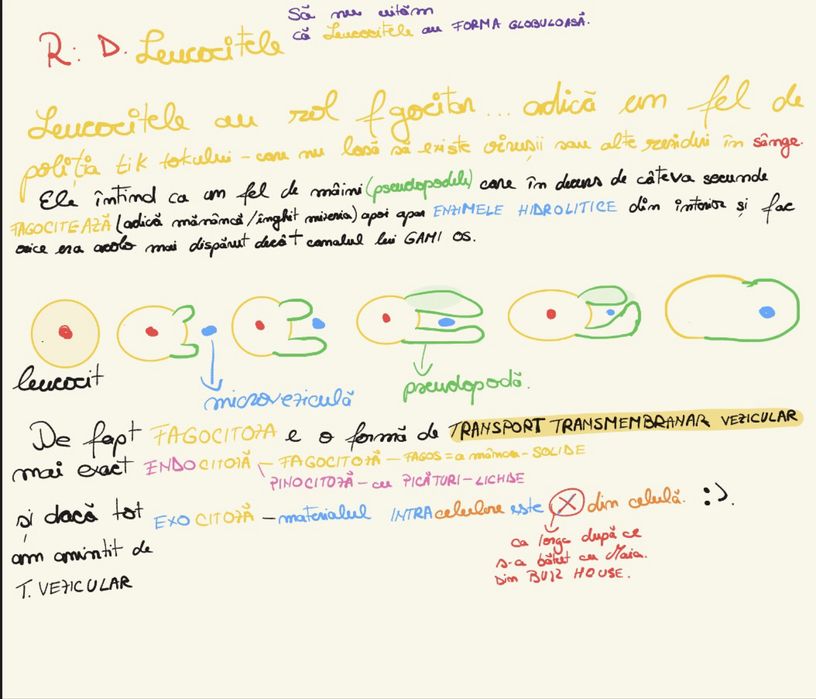 Să nu uităm
că Leucocitele au FORMA GLOBULOASĂ.
R: D. Leucocitele
Leucocitele au rol fgocitar... adică um fel de
poliția tik tokului - care nu lasă să existe virușii sau alte reziduri în sânge.
Ele întind ca um fel de mâini (pseudopodele) care în decurs de câteva secunde
FAGOCITEAZĂ (adică mănâncă/înghit mizeria) apoi apar ENZIMELE HIDROLITICE din interior și fac
orice era acolo mai dispărut decât canalul lui GAMI OS.
leucocit
microveziculă
pseudopodă.
De fapt FAGOCITOZA e o formă de TRANSPORT TRANSMEMBRANAR VEZICULAR
mai exact ENDOCITOZĂ - FAGOCITOZĂ - FAGOS = a mânca - SOLIDE
PINOCITOZĂ - cu PICĂTURI - LICHIDE
și dacă tot EXOCITOZĂ - materialul INTRAcelulare este X din celulă. :).
am amintit de
T. VEZICULAR
ca Iorga după ce
s-a bătut cu Maia.
din BUZZ HOUSE.